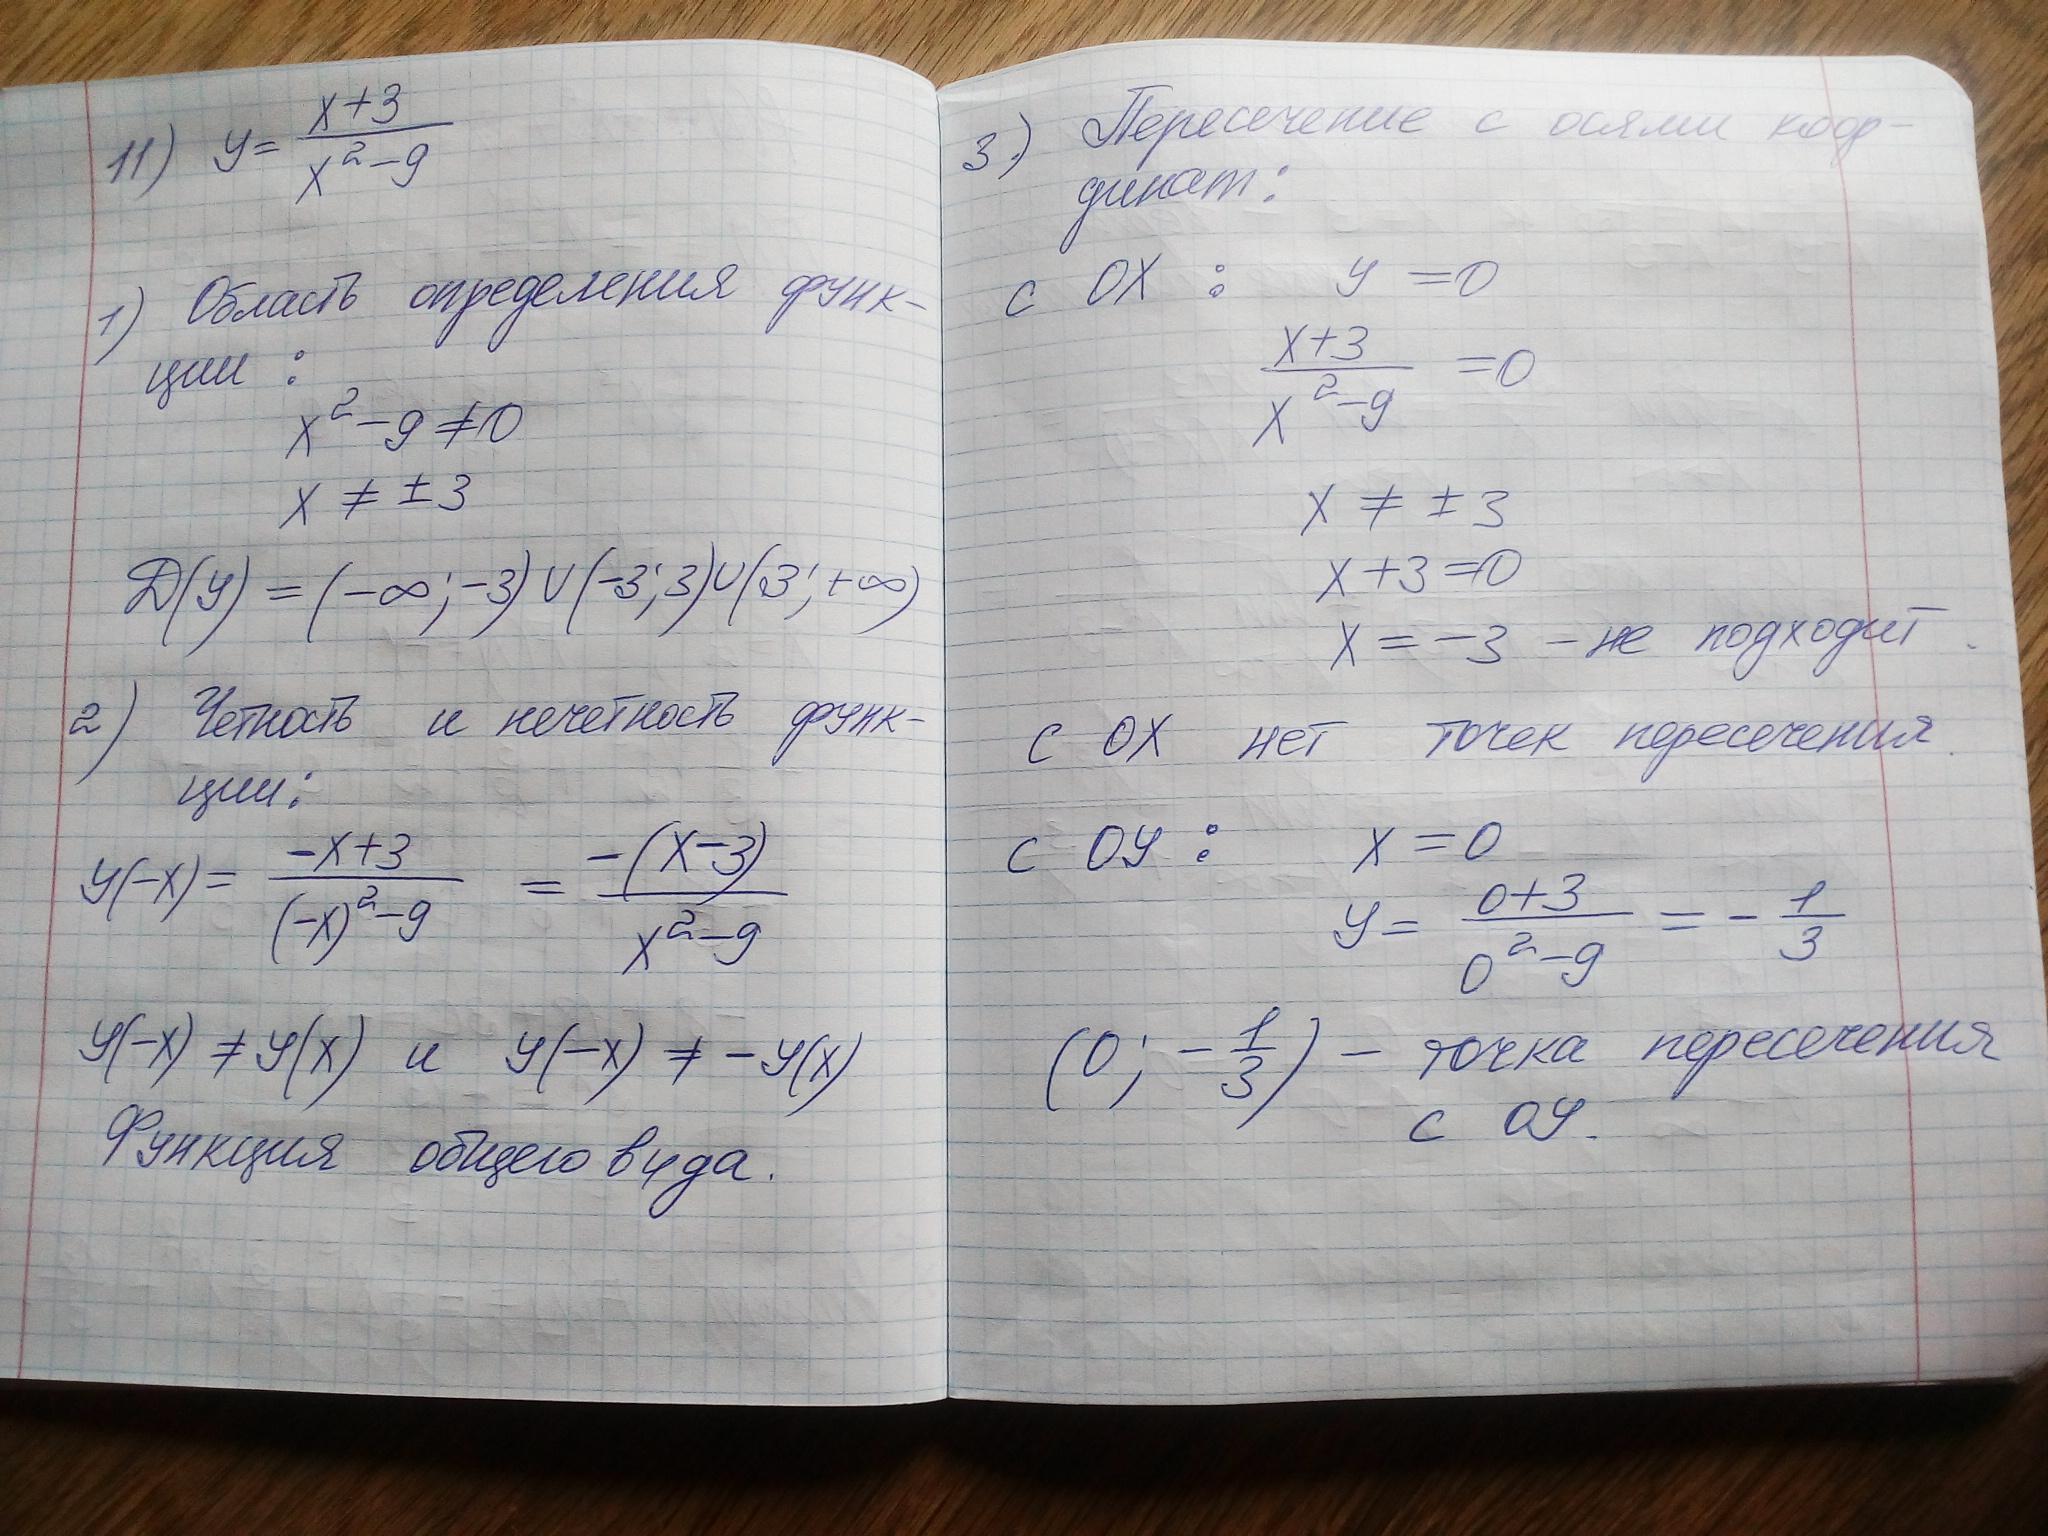 11) y = (x+3)/(x²-9)
1) Область определения функ-
ции :
x²-9≠0
x ≠ ±3
Д(y) = (-∞;-3)∪(-3;3)∪(3;+∞)
2) Четность и нечетность функ-
ции:
y(-x) = (-x+3)/((-x)²-9) = (-(x-3))/(x²-9)
y(-x) ≠ y(x) и y(-x) ≠ -y(x)
Функция общего вида.
3.) Пересечение с осями коор-
динат:
с OX : y = 0
(x+3)/(x²-9) = 0
x ≠ ±3
x+3=0
x = -3 - не подходит.
с OX нет точек пересечения.
с OY : x = 0
y = (0+3)/(0²-9) = -1/3
(0; -1/3) - точка пересечения
с OY.